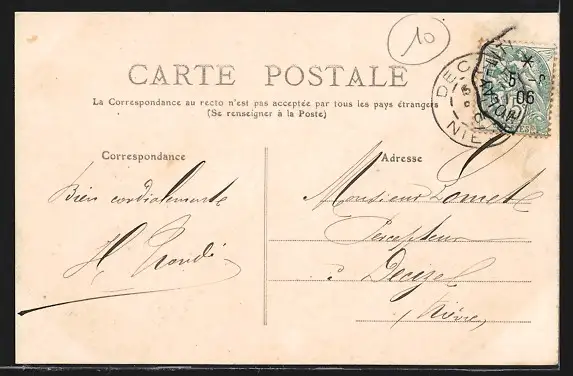 10
CARTE POSTALE
La Correspondance au recto n'est pas acceptée par tous les pays étrangers
(Se renseigner à la Poste)
Correspondance
Adresse
Bien cordialement
H.
Monsieur Lomet
Percepteur
à Decize
Nièvre
DECIZE
NIE
5
06